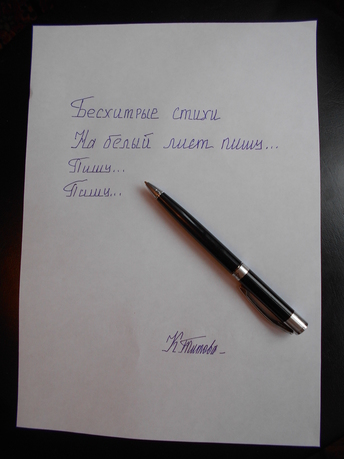 Бесхитрые стихи
На белый лист пишу...
Пишу...
Пишу...
К Титова